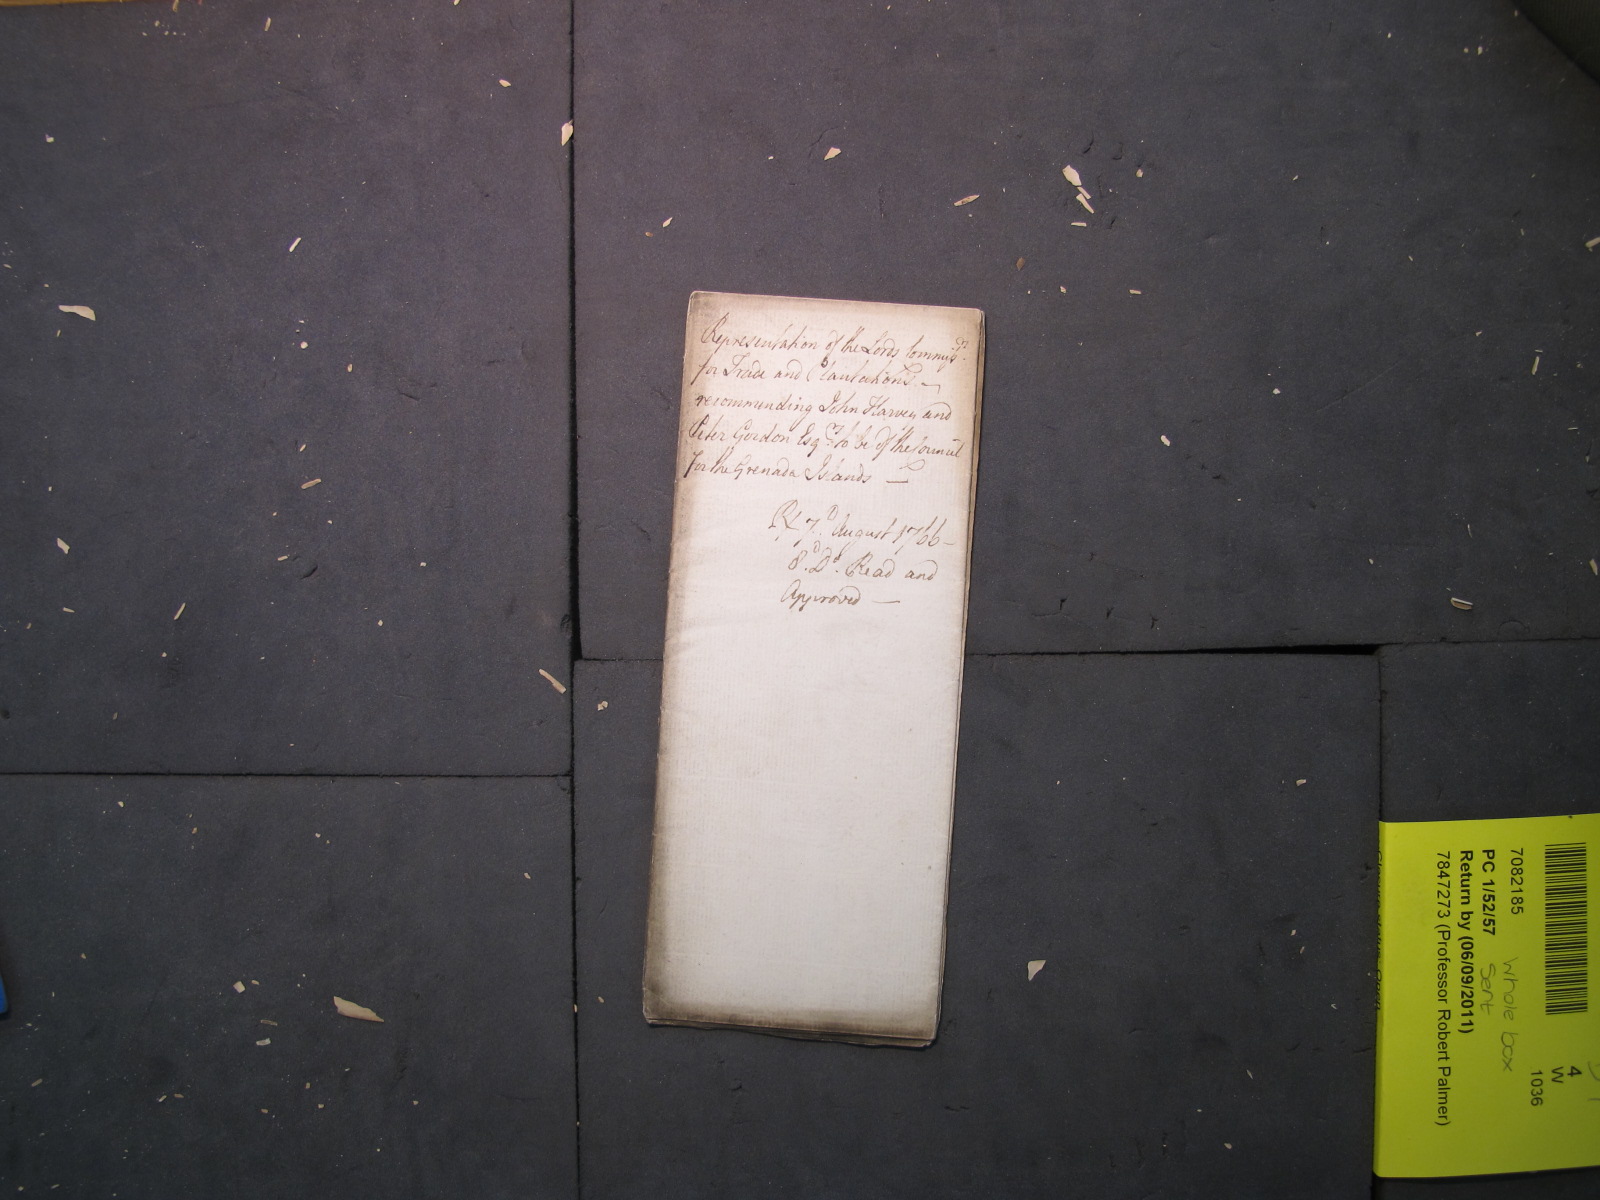 Representation of the Lords Commiss.rs
for Trade and Plantations. —
recommending John Harvey and
Peter Gordon Esq.rs to be of the Council
for the Grenada Islands —
7.th August 1766 —
8.th D.o Read and
Approved —
7082185
PC 1/52/57
Return by (06/09/2011)
7847273 (Professor Robert Palmer)
Whole box
Sent
4
W
1036